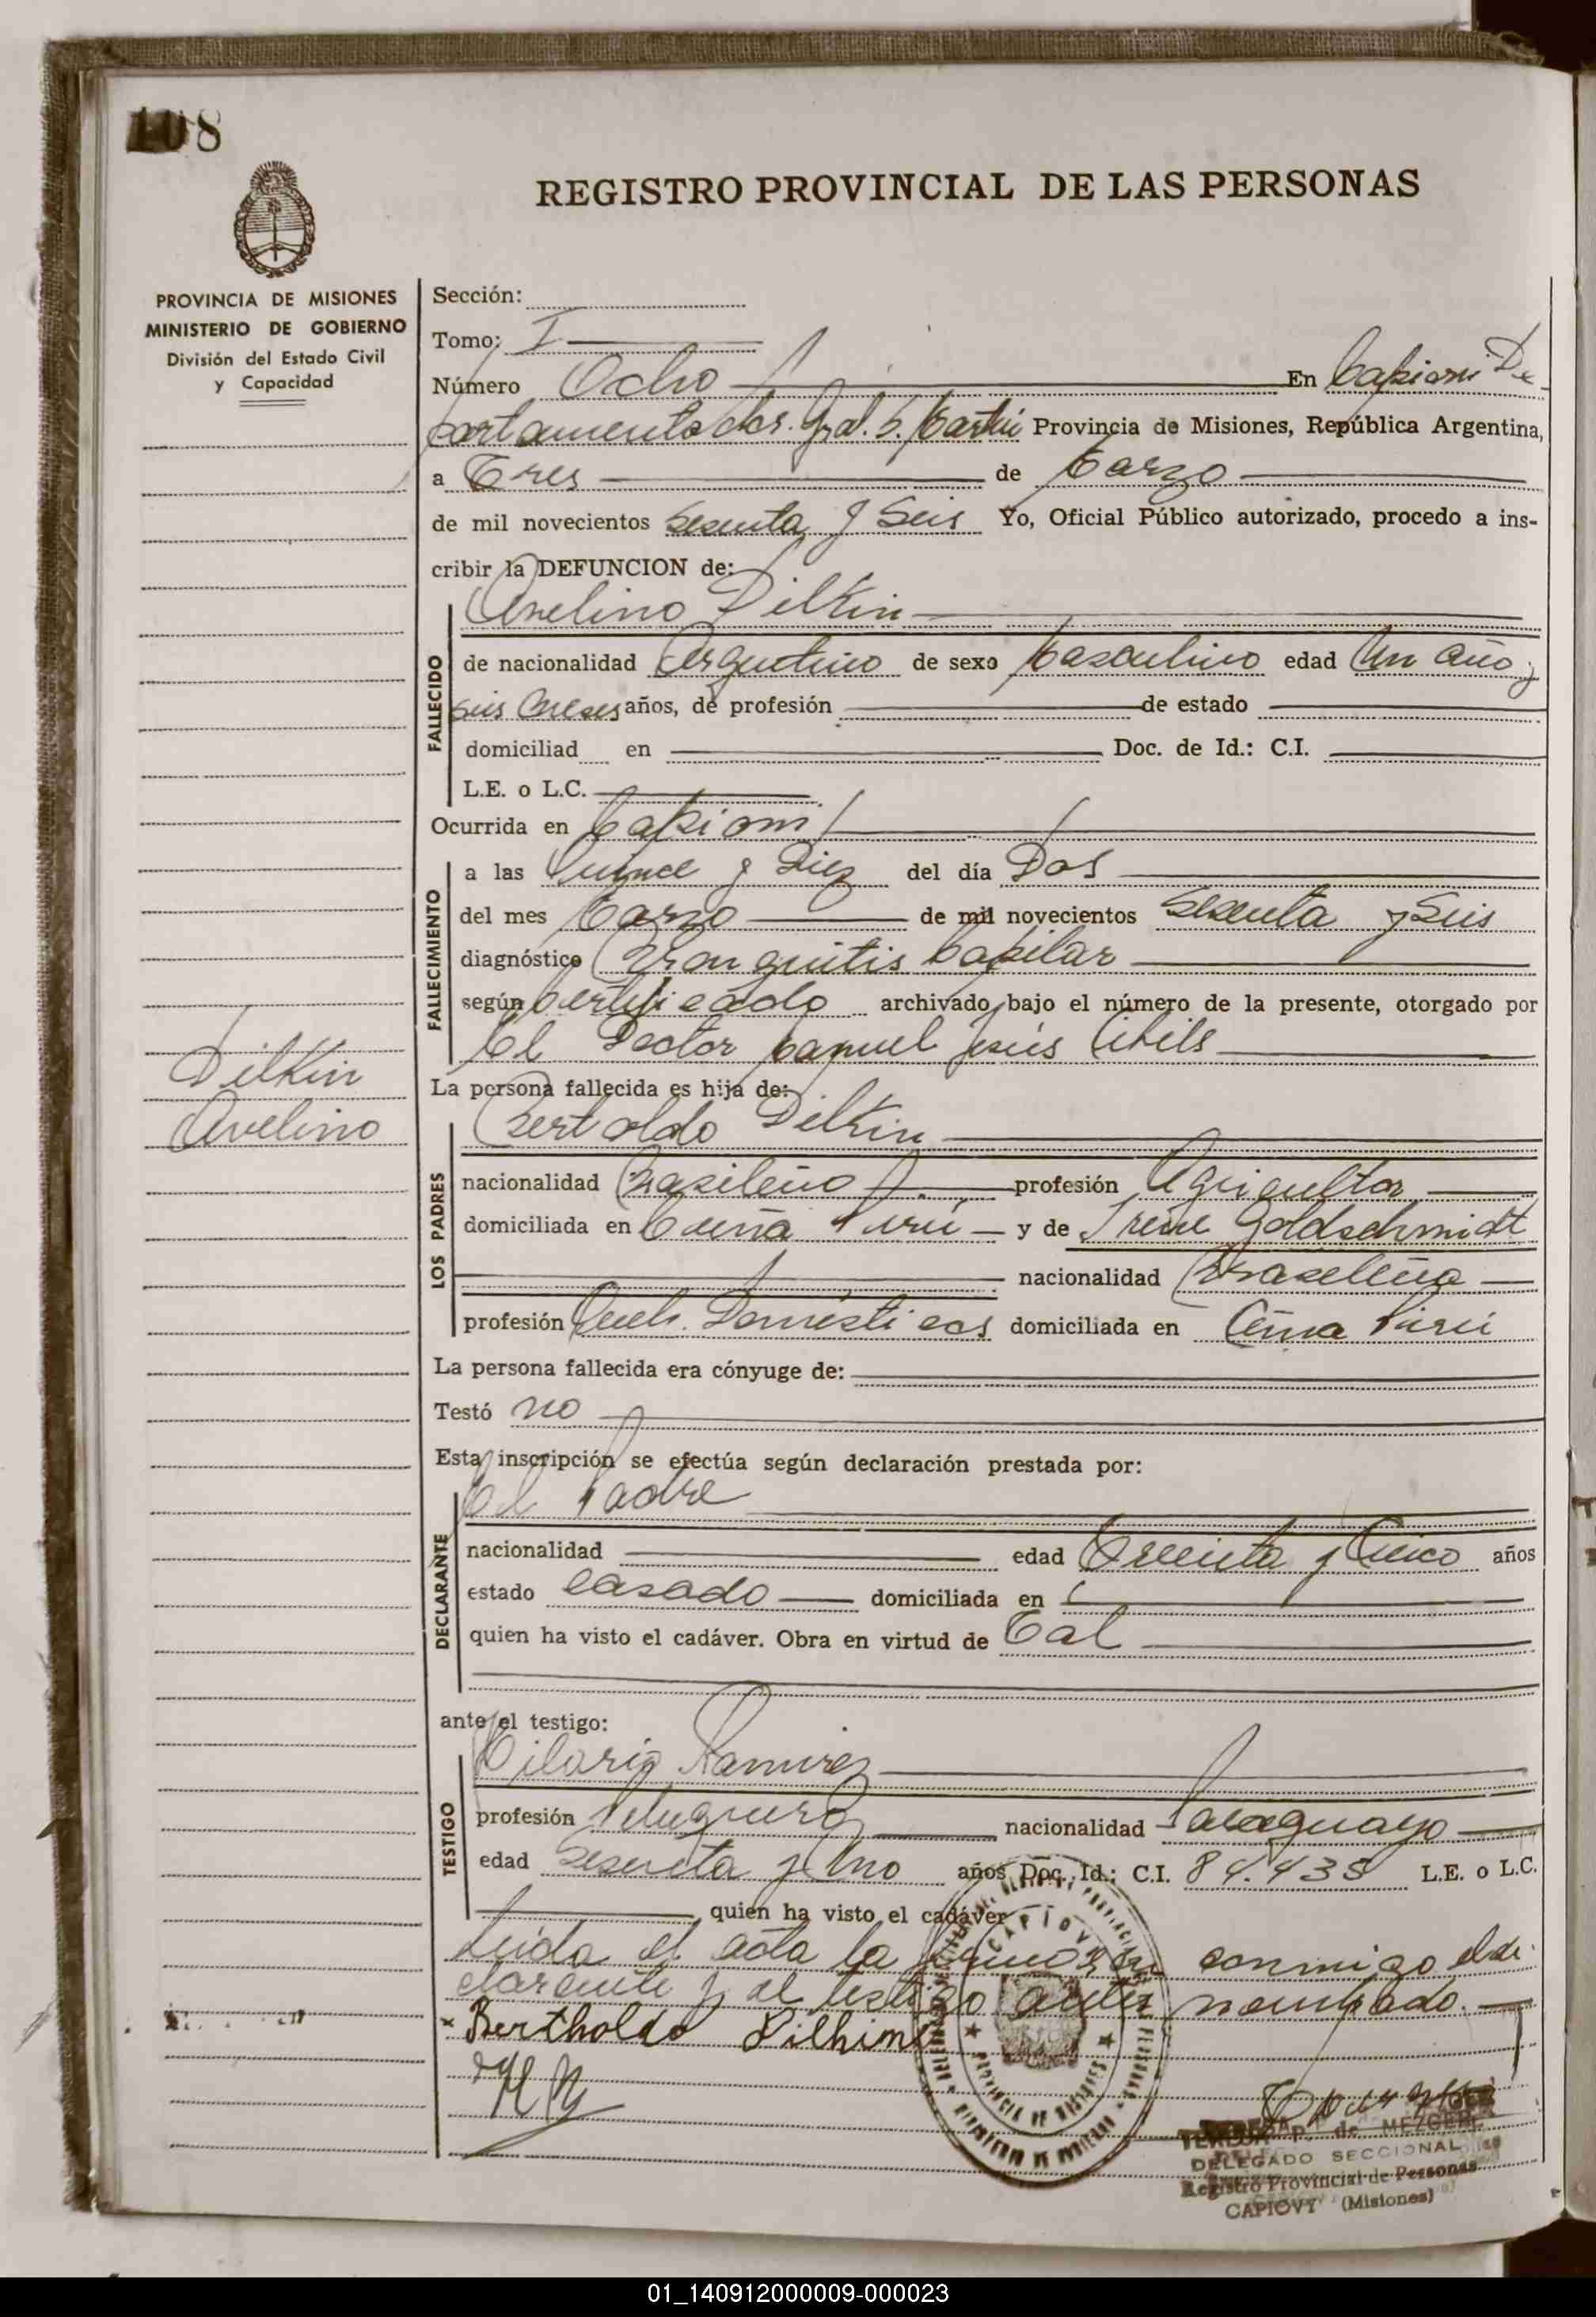 108
REGISTRO PROVINCIAL DE LAS PERSONAS
PROVINCIA DE MISIONES
MINISTERIO DE GOBIERNO
División del Estado Civil
y Capacidad
Sección:
Tomo: I
Número Ocho En Capiovi De
partamento Lib. Gral. S. Martín Provincia de Misiones, República Argentina,
a Tres de Marzo
de mil novecientos Sesenta y Seis Yo, Oficial Público autorizado, procedo a ins-
cribir la DEFUNCION de:
Avelino Dilkin
FALLECIDO
de nacionalidad Argentino de sexo Masculino edad Un año y
seis meses años, de profesión de estado
domiciliad en Doc. de Id.: C.I.
L.E. o L.C.
Ocurrida en Capiovi
FALLECIMIENTO
a las Quince y Diez del día Dos
del mes Marzo de mil novecientos Sesenta y Seis
diagnóstico Bronquitis Capilar
según Certificado archivado bajo el número de la presente, otorgado por
El Doctor Manuel Jesús Cibils
Dilkin
Avelino
La persona fallecida es hija de:
Bertoldo Dilkin
LOS PADRES
nacionalidad Brasileño profesión Agricultor
domiciliada en Cuña Pirú y de Irene Goldschmidt
nacionalidad Brasileña
profesión Queh. Domésticos domiciliada en Cuña Pirú
La persona fallecida era cónyuge de:
Testó no
Esta inscripción se efectúa según declaración prestada por:
El Padre
DECLARANTE
nacionalidad edad Treinta y Cinco años
estado casado domiciliada en
quien ha visto el cadáver. Obra en virtud de Tal
ante el testigo:
Hilario Ramirez
TESTIGO
profesión nacionalidad Paraguayo
edad Sesenta y Uno años Doc. Id.: C.I. 84.435 L.E. o L.C.
quien ha visto el cadáver
Leída el acta la firman conmigo el de
clarante y el testigo antes nombrado.
x Bertholdo Dilkin
CAPIOVY
PROVINCIA DE MISIONES
de MEZGER
DELEGADO SECCIONAL
Registro Provincial de Personas
CAPIOVY (Misiones)
01_140912000009-000023